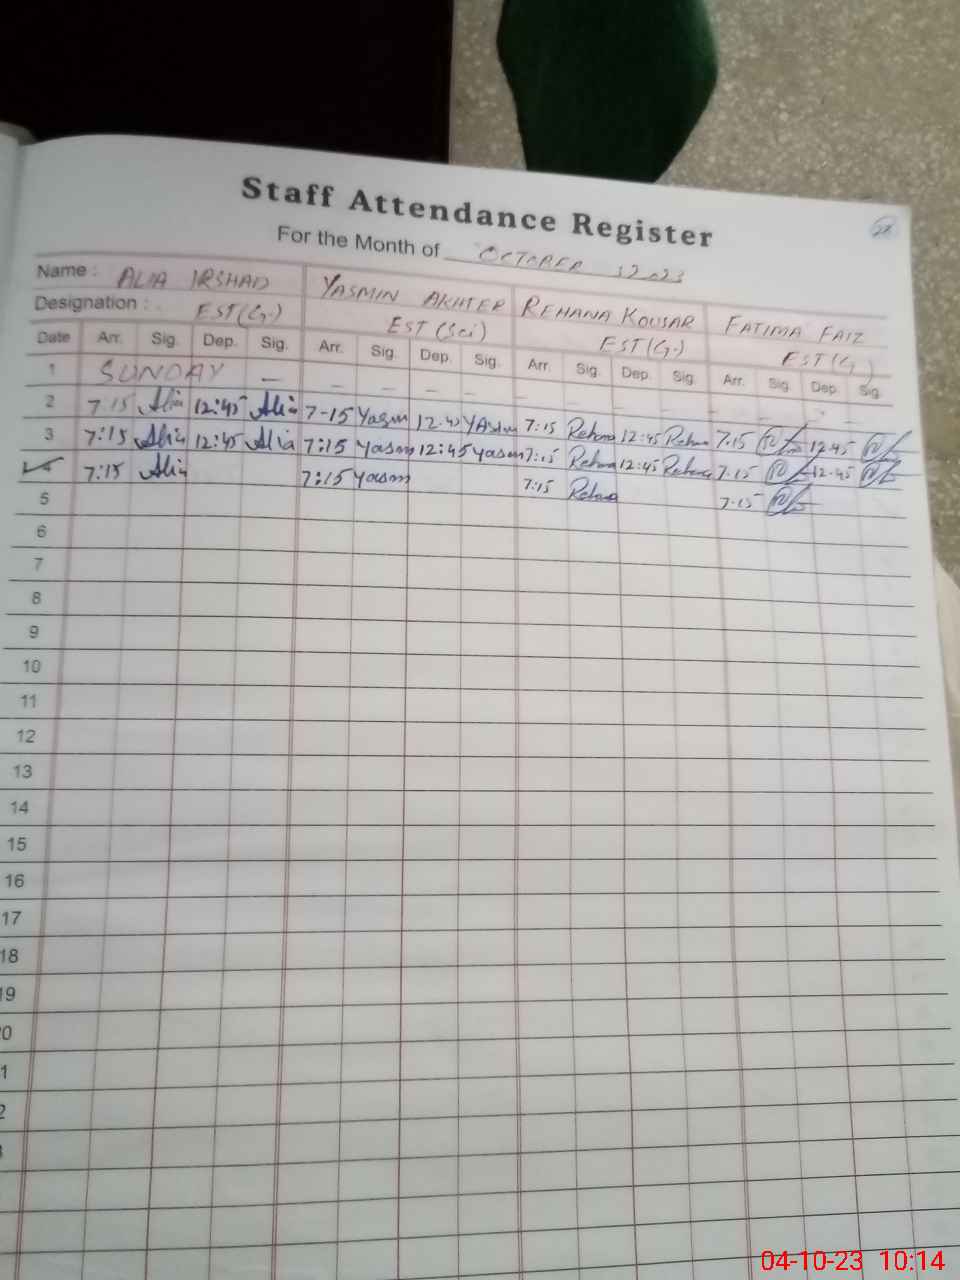 Staff Attendance Register
28
For the Month of OCTOBER 2023
Name : ALIA IRSHAD YASMIN AKHTER REHANA KOUSAR FATIMA FAIZ
Designation : EST(G.) EST (Sci) EST(G.) EST(G)
Date Arr. Sig. Dep. Sig. Arr. Sig. Dep. Sig. Arr. Sig. Dep. Sig. Arr. Sig. Dep. Sig.
1 SUNDAY — — — — — — — — — — —
2 7:15 Alia 12:45 Alia 7-15 Yasmn 12.45 YAsmn 7:15 Rehana 12:45 Rehana 7.15 12.45
3 7:15 Alia 12:45 Alia 7:15 Yasmn 12:45 Yasmn 7:15 Rehana 12:45 Rehana 7.15 12.45
7:15 Alia 7:15 Yasmn 7:15 Rehana 7.15
5
6
7
8
9
10
11
12
13
14
15
16
17
18
19
0
1
2
04-10-23 10:14